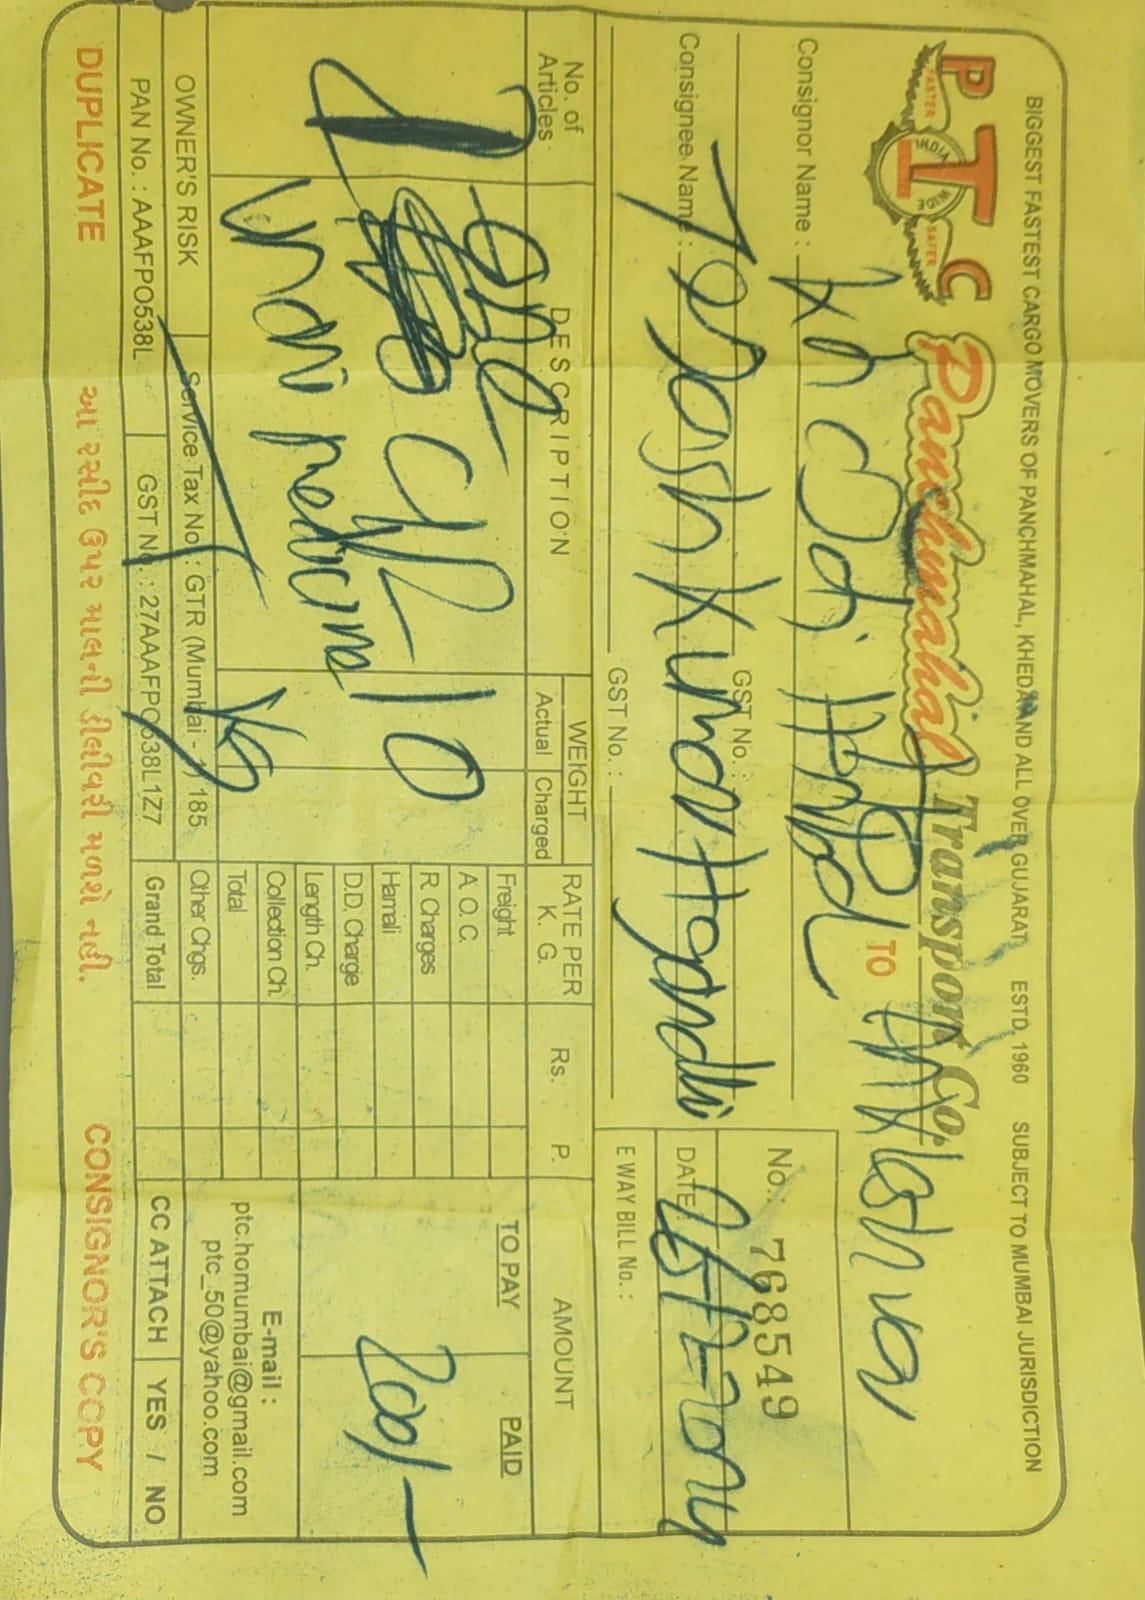 BIGGEST FASTEST CARGO MOVERS OF PANCHMAHAL, KHEDA AND ALL OVER GUJARAT ESTD. 1960 SUBJECT TO MUMBAI JURISDICTION
PTC Panchmahal Transport Co.
FASTER INDIA WIDE SAFER
TO
Consignor Name :
GST No. :
No. : 768549
Consignee Name : Yogash Kumar
DATE
GST No. :
E WAY BILL No. :
No. of Articles
DESCRIPTION
WEIGHT
Actual Charged
RATE PER K. G.
Rs. P.
AMOUNT
TO PAY
PAID
one
10
kg
200/-
Freight
A. O. C.
R. Charges
Hamali
D.D. Charge
Length Ch.
Collection Ch.
Total
Other Chgs.
Grand Total
E-mail :
ptc.homumbai@gmail.com
ptc_50@yahoo.com
OWNER'S RISK
Service Tax No. : GTR (Mumbai - 1) 185
PAN No. : AAAFPO538L
GST No. : 27AAAFPO538L1Z7
CC ATTACH YES / NO
DUPLICATE
આ રસીદ ઉપર માલની ડીલીવરી મળશે નહી.
CONSIGNOR'S COPY